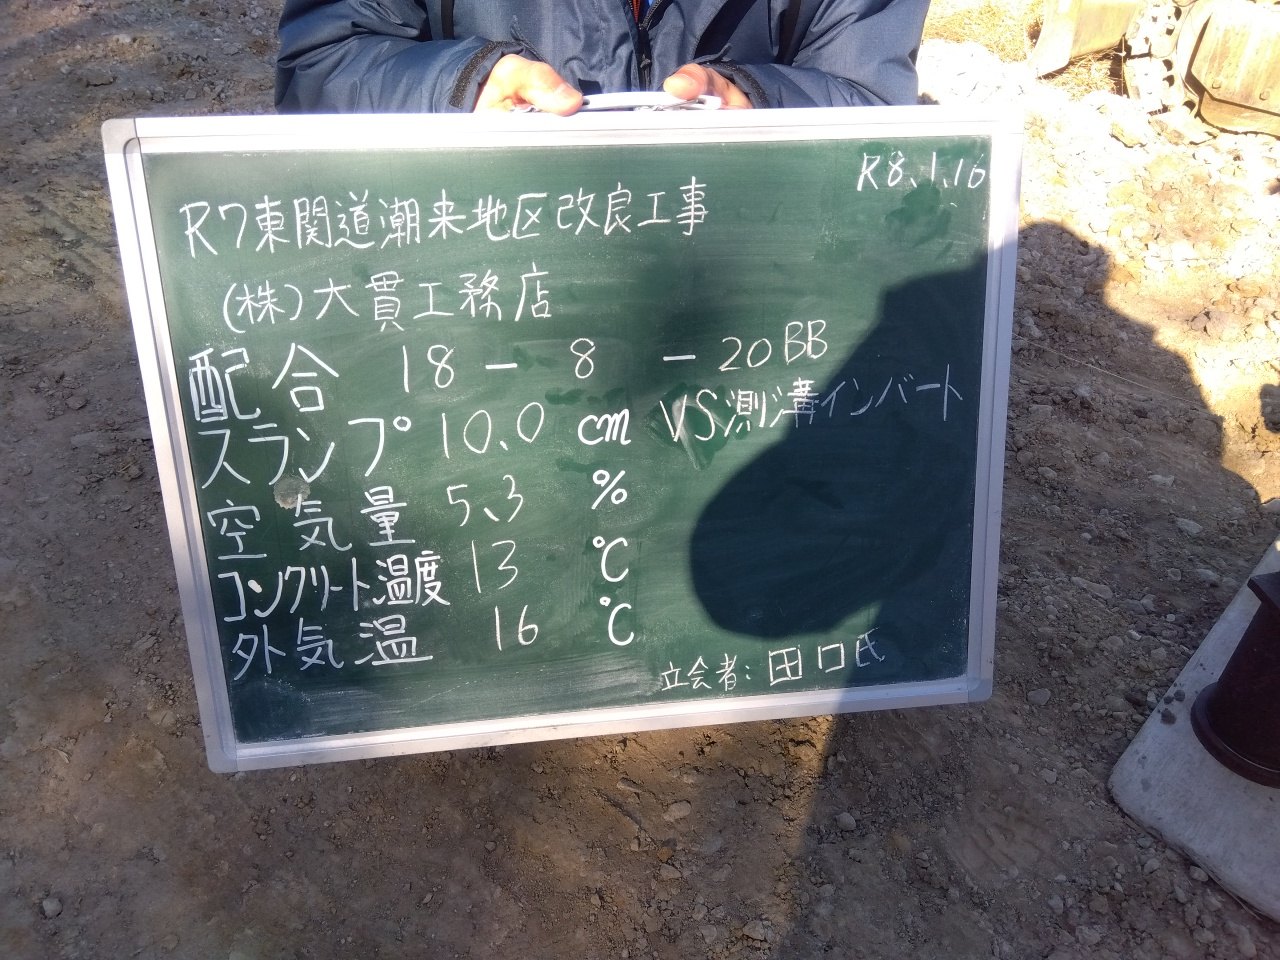 R8.1.16
R7東関道潮来地区改良工事
(株)大貫工務店
配合 18-8-20BB
スランプ 10.0 cm VS測溝インバート
空気量 5.3 %
コンクリート温度 13 ℃
外気温 16 ℃
立会者:田口氏